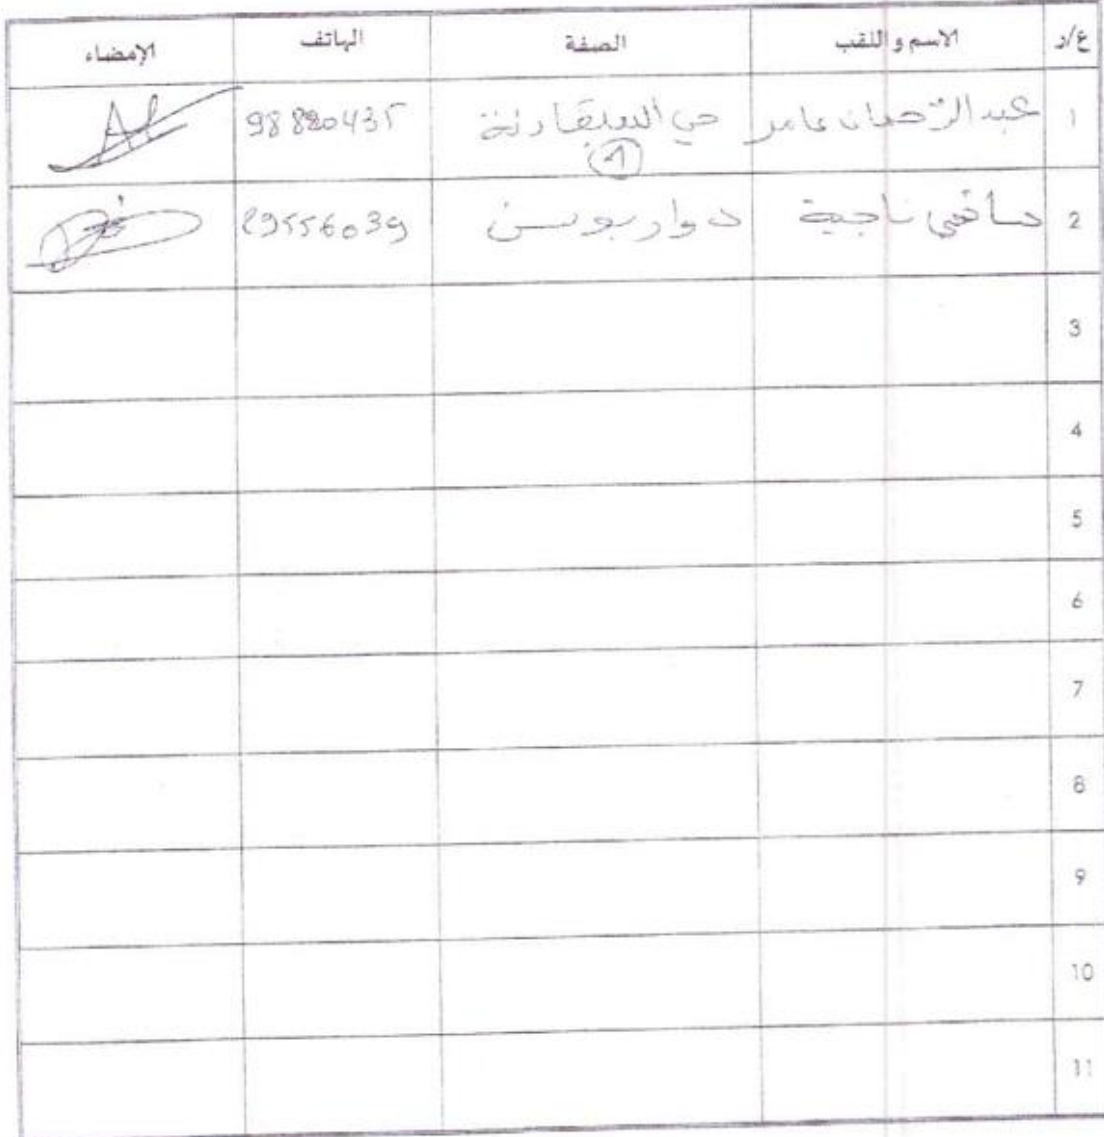 ع/د الاسم و اللقب الصفة الهاتف الإمضاء
1 عبد الرّحمان عامر حي 98820435
1
2 ناجية دوار 29556039
3
4
5
6
7
8
9
10
11